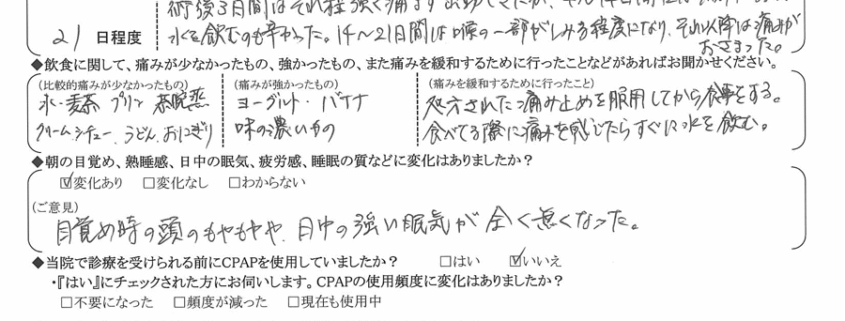 術後3日間はそれ程強く痛まず
21 日程度 水を飲むのも辛かった。14〜21日間は喉の一部がしみる程度になり、それ以降は痛みが
おさまった。
◆飲食に関して、痛みが少なかったもの、強かったもの、また痛みを緩和するために行ったことなどがあればお聞かせください。
(比較的痛みが少なかったもの) (痛みが強かったもの) (痛みを緩和するために行ったこと)
水・麦茶 プリン 茶碗蒸 ヨーグルト・バナナ 処方された痛み止めを服用してから食事をする。
クリームシチュー、うどん、おにぎり 味の濃いもの 食べてる際に痛みを感じたらすぐに水を飲む。
◆朝の目覚め、熟睡感、日中の眠気、疲労感、睡眠の質などに変化はありましたか?
☑変化あり □変化なし □わからない
(ご意見)
目覚め時の頭のもやもや、日中の強い眠気が全く無くなった。
◆当院で診療を受けられる前にCPAPを使用していましたか? □はい ☑いいえ
・『はい』にチェックされた方にお伺いします。CPAPの使用頻度に変化はありましたか?
□不要になった □頻度が減った □現在も使用中